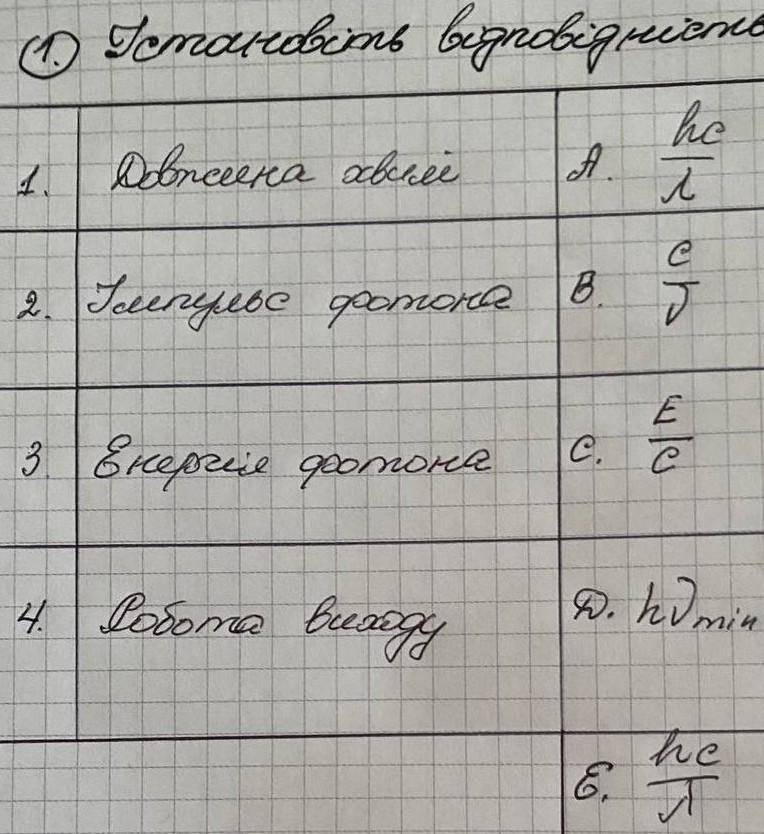 1. Установіть відповідність
1. Довжина хвилі A. hc/λ
2. Імпульс фотона B. c/ν
3. Енергія фотона C. E/c
4. Робота виходу D. hν min
E. hc/λ